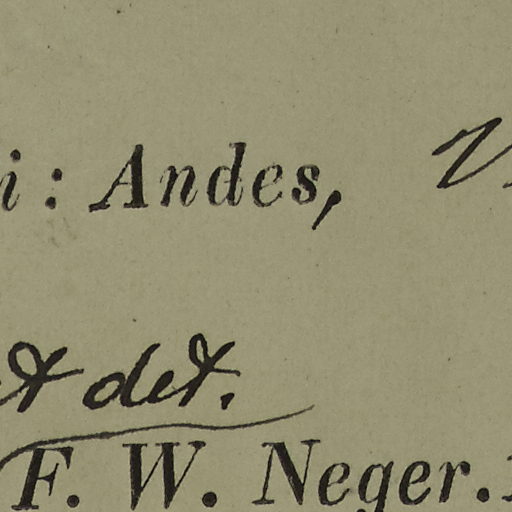 i: Andes,
et det.
F. W. Neger.